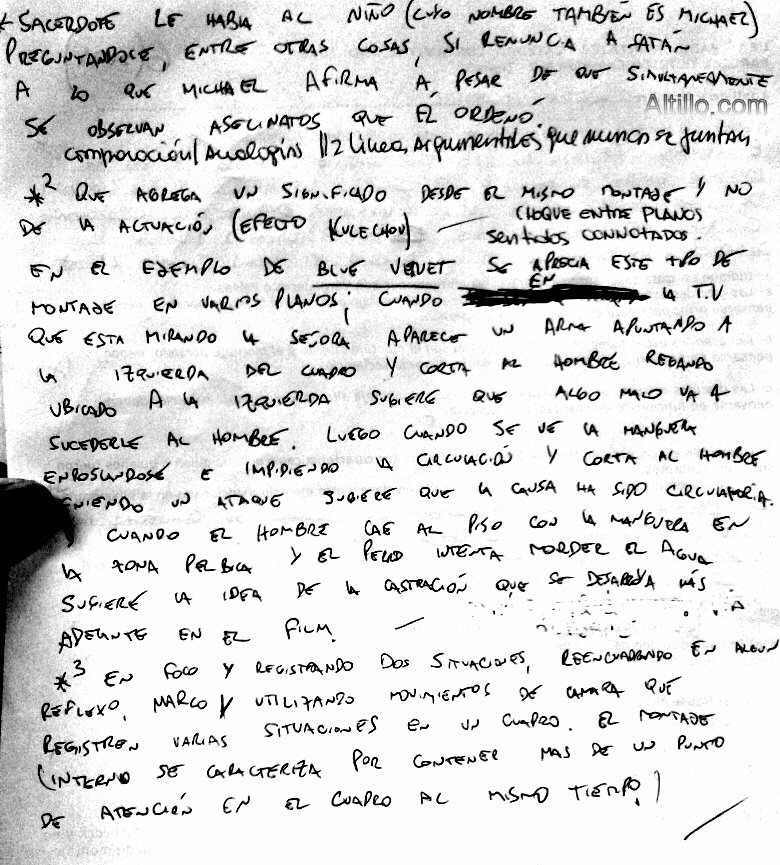 SACERDOTE LE HABLA AL NIÑO (CUYO NOMBRE TAMBIÉN ES MICHAEL)
PREGUNTANDOLE, ENTRE OTRAS COSAS, SI RENUNCIA A SATÁN
A LO QUE MICHAEL AFIRMA A PESAR DE QUE SIMULTANEAMENTE
Altillo.com
SE OBSERVAN ASECINATOS QUE ÉL ORDENÓ.
comparación/Analogías // 2 lineas argumentales que nunca se juntan
*2 QUE AGREGA UN SIGNIFICADO DESDE EL MISMO MONTAJE Y NO
DE LA ACTUACIÓN (EFECTO KULECHOV) — CHOQUE ENTRE PLANOS
sentidos CONNOTADOS.
EN EL EJEMPLO DE BLUE VELVET SE APRECIA ESTE TIPO DE
MONTAJE EN VARIOS PLANOS; CUANDO EN LA T.V
QUE ESTA MIRANDO LA SEÑORA APARECE UN ARMA APUNTANDO A
LA IZQUIERDA DEL CUADRO Y CORTA AL HOMBRE REGANDO
UBICADO A LA IZQUIERDA SUGIERE QUE ALGO MALO VA A
SUCEDERLE AL HOMBRE. LUEGO CUANDO SE VE LA MANGUERA
ENROSCANDOSE E IMPIDIENDO LA CIRCULACIÓN Y CORTA AL HOMBRE
TENIENDO UN ATAQUE SUGIERE QUE LA CAUSA HA SIDO CIRCULATORIA.
CUANDO EL HOMBRE CAE AL PISO CON LA MANGUERA EN
LA ZONA PELBICA Y EL PERRO INTENTA MORDER EL AGUA
SUGIERE LA IDEA DE LA CASTRACIÓN QUE SE DESARROYA MÁS
ADELANTE EN EL FILM. —
*3 EN FOCO Y REGISTRANDO DOS SITUACIONES, REENCUADRANDO EN ALGUN
REFLEXO, MARCO Y UTILIZANDO MOVIMIENTOS DE CAMARA QUE
REGISTREN VARIAS SITUACIONES EN UN CUADRO. EL MONTAJE
(INTERNO SE CARACTERIZA POR CONTENER MAS DE UN PUNTO
DE ATENCIÓN EN EL CUADRO AL MISMO TIEMPO.)